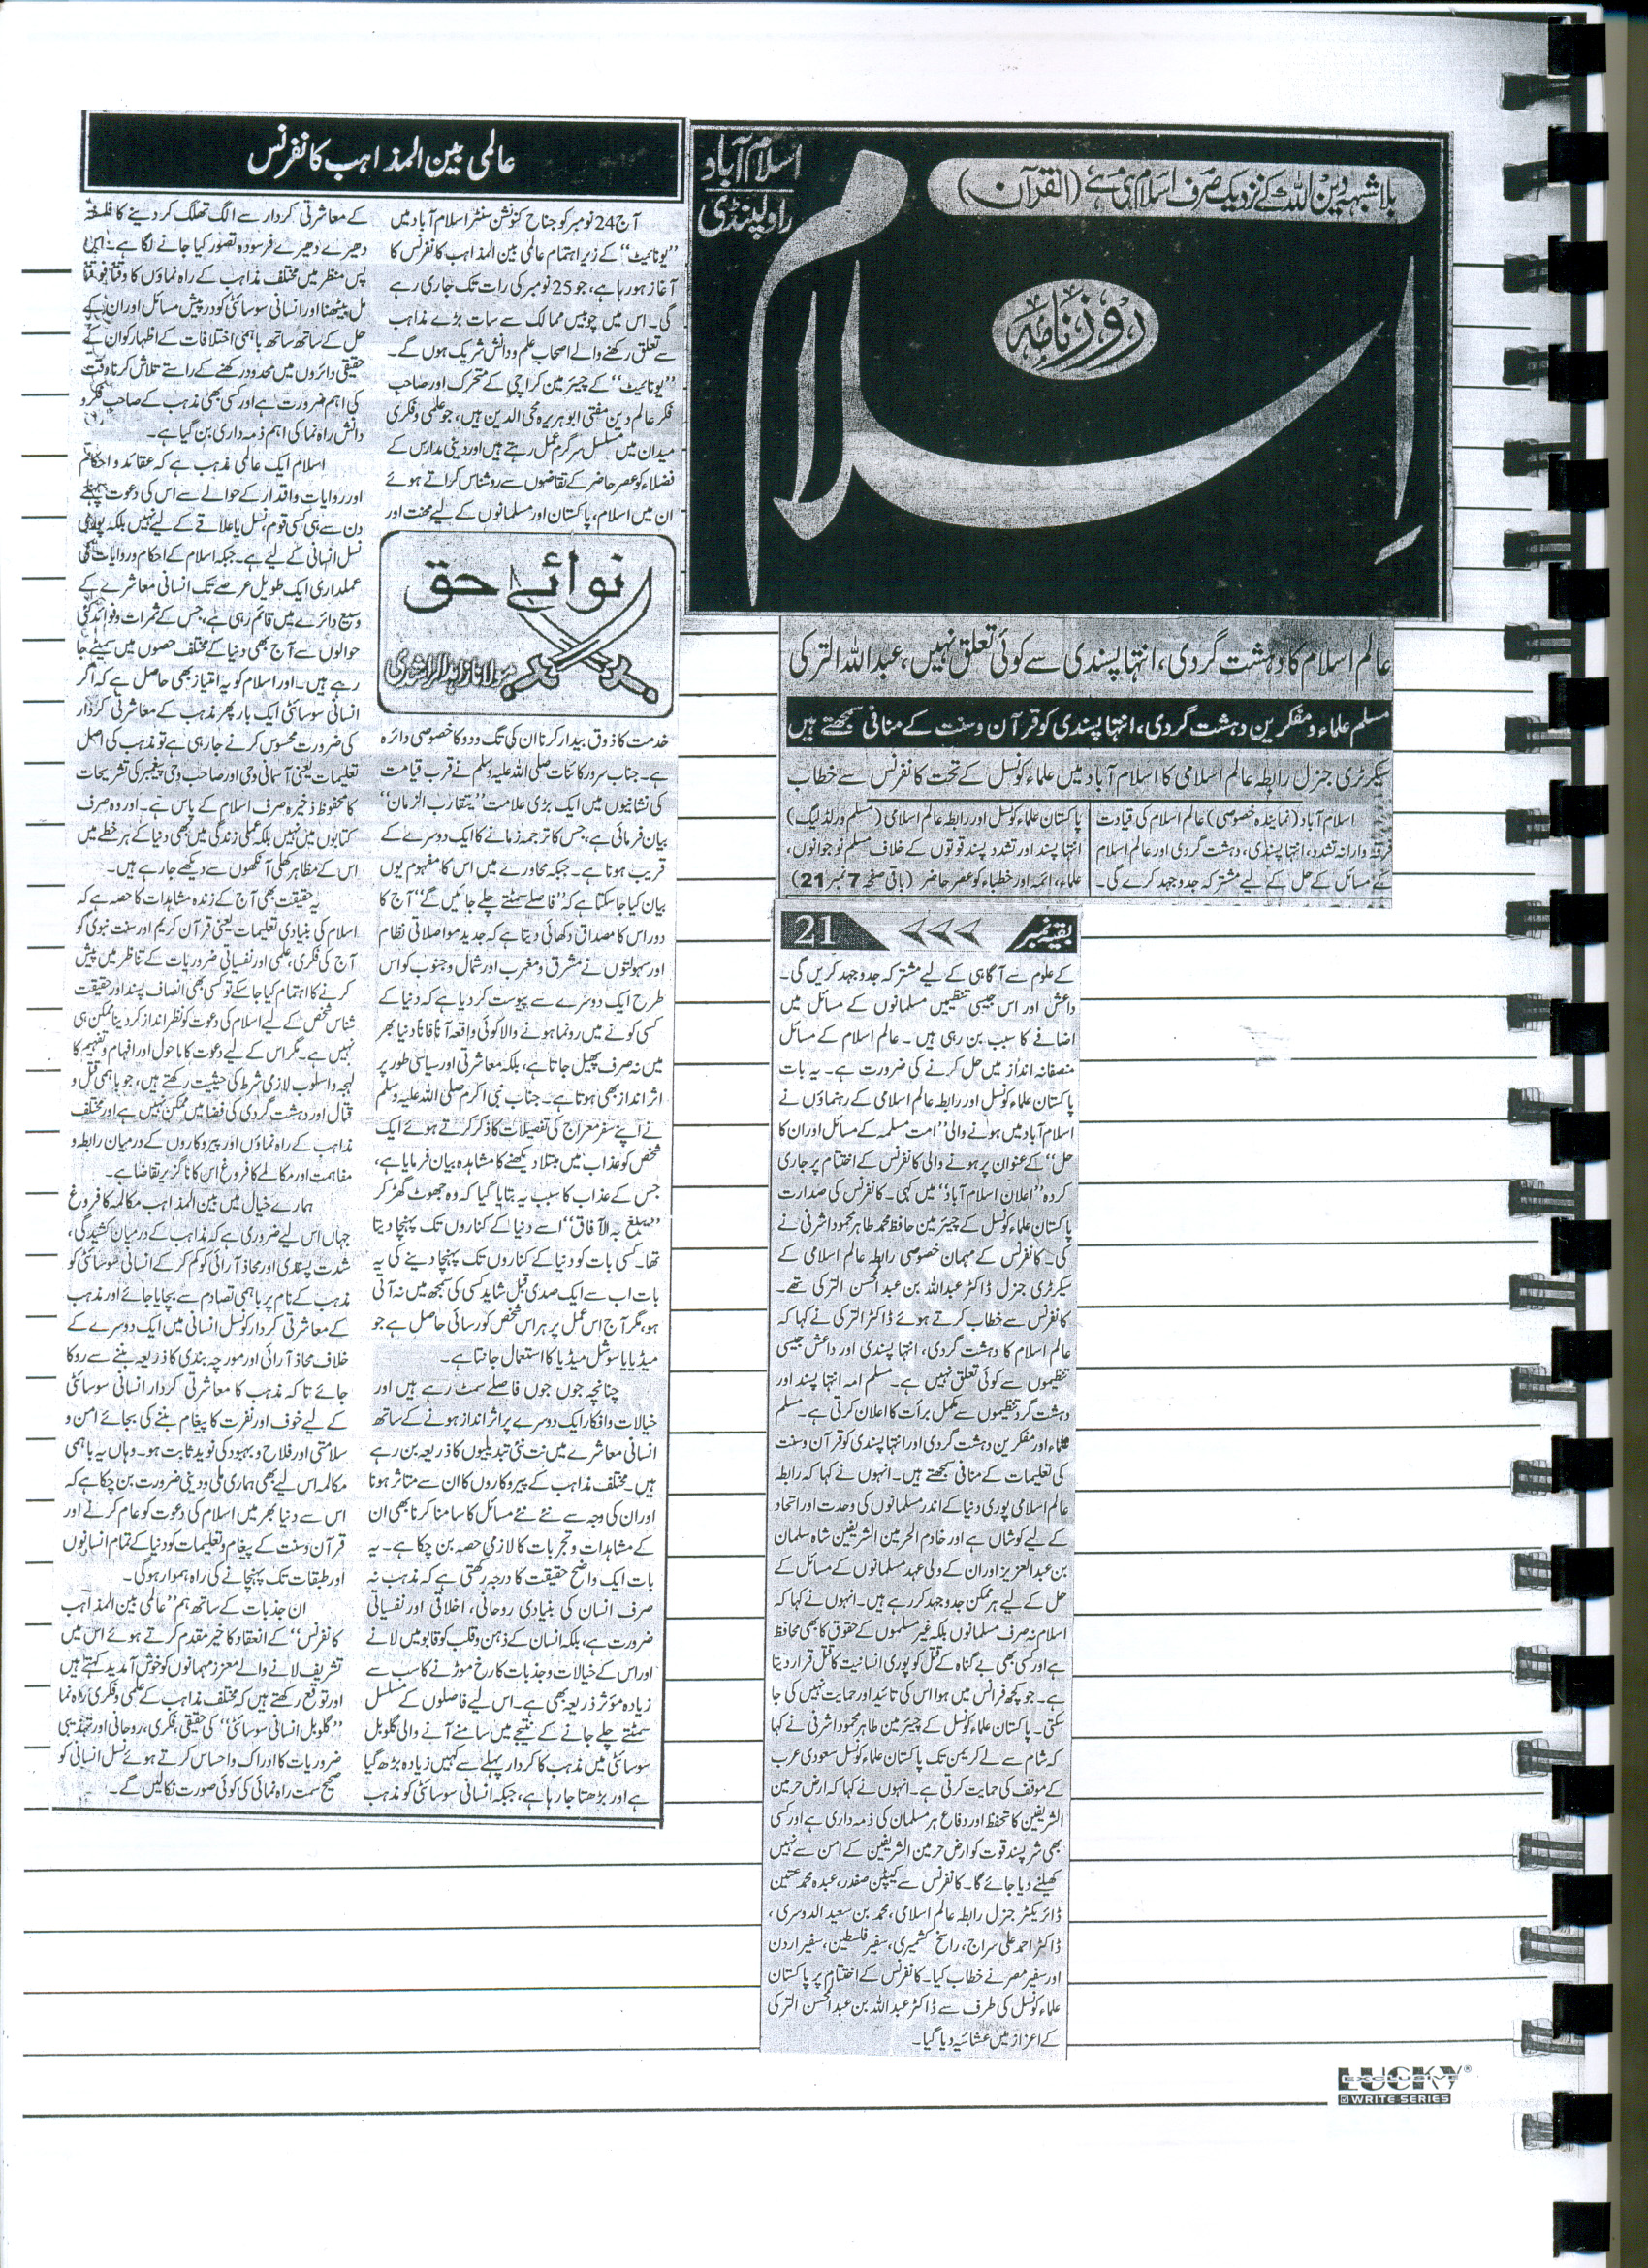 بلاشبہ دین اللہ کے نزدیک صرف اسلام ہی ہے (القرآن)
اسلام آباد
راولپنڈی
روزنامہ
اسلام
عالم اسلام کا دہشت گردی، انتہا پسندی سے کوئی تعلق نہیں، عبداللہ الترکی
مسلم علماء و مفکرین دہشت گردی، انتہا پسندی کو قرآن و سنت کے منافی سمجھتے ہیں
سیکرٹری جنرل رابطہ عالم اسلامی کا اسلام آباد میں علماء کونسل کے تحت کانفرنس سے خطاب
اسلام آباد (نمائندہ خصوصی) عالم اسلام کی قیادت
فرقہ وارانہ تشدد، انتہا پسندی، دہشت گردی اور عالم اسلام
کے مسائل کے حل کے لیے مشترکہ جدوجہد کرے گی۔
پاکستان علماء کونسل اور رابطہ عالم اسلامی (مسلم ورلڈ لیگ)
انتہا پسند اور تشدد پسند قوتوں کے خلاف مسلم نوجوانوں،
علماء، ائمہ اور خطباء کو عصر حاضر (باقی صفحہ 7 نمبر 21)
بقیہ نمبر 21
کے علوم سے آگاہی کے لیے مشترکہ جدوجہد کریں گی۔
داعش اور اس جیسی تنظیمیں مسلمانوں کے مسائل میں
اضافے کا سبب بن رہی ہیں۔ عالم اسلام کے مسائل
منصفانہ انداز میں حل کرنے کی ضرورت ہے۔ یہ بات
پاکستان علماء کونسل اور رابطہ عالم اسلامی کے رہنماؤں نے
اسلام آباد میں ہونے والی ”امت مسلمہ کے مسائل اور ان کا
حل“ کے عنوان پر ہونے والی کانفرنس کے اختتام پر جاری
کردہ ”اعلان اسلام آباد“ میں کہی۔ کانفرنس کی صدارت
پاکستان علماء کونسل کے چیئرمین حافظ محمد طاہر محمود اشرفی نے
کی۔ کانفرنس کے مہمان خصوصی رابطہ عالم اسلامی کے
سیکرٹری جنرل ڈاکٹر عبداللہ بن عبدالمحسن الترکی تھے۔
کانفرنس سے خطاب کرتے ہوئے ڈاکٹر الترکی نے کہا کہ
عالم اسلام کا دہشت گردی، انتہا پسندی اور داعش جیسی
تنظیموں سے کوئی تعلق نہیں ہے۔ مسلم امہ انتہا پسند اور
دہشت گرد تنظیموں سے مکمل برأت کا اعلان کرتی ہے۔ مسلم
علماء اور مفکرین دہشت گردی اور انتہا پسندی کو قرآن و سنت
کی تعلیمات کے منافی سمجھتے ہیں۔ انہوں نے کہا کہ رابطہ
عالم اسلامی پوری دنیا کے اندر مسلمانوں کی وحدت اور اتحاد
کے لیے کوشاں ہے اور خادم الحرمین الشریفین شاہ سلمان
بن عبدالعزیز اور ان کے ولی عہد مسلمانوں کے مسائل کے
حل کے لیے ہر ممکن جدوجہد کررہے ہیں۔ انہوں نے کہا کہ
اسلام نہ صرف مسلمانوں بلکہ غیر مسلموں کے حقوق کا بھی محافظ
ہے اور کسی بھی بے گناہ کے قتل کو پوری انسانیت کا قتل قرار دیتا
ہے۔ جو کچھ فرانس میں ہوا اس کی تائید اور حمایت نہیں کی جا
سکتی۔ پاکستان علماء کونسل کے چیئرمین طاہر محمود اشرفی نے کہا
کہ شام سے لے کر یمن تک پاکستان علماء کونسل سعودی عرب
کے موقف کی حمایت کرتی ہے۔ انہوں نے کہا کہ ارض حرمین
الشریفین کا تحفظ اور دفاع ہر مسلمان کی ذمہ داری ہے اور کسی
بھی شر پسند قوت کو ارض حرمین الشریفین کے امن سے نہیں
کھیلنے دیا جائے گا۔ کانفرنس سے کیپٹن صفدر، عبدہ محمد عتین
ڈائریکٹر جنرل رابطہ عالم اسلامی، محمد بن سعید الدوسری،
ڈاکٹر احمد علی سراج، راسخ کشمیری، سفیر فلسطین، سفیر اردن
اور سفیر مصر نے خطاب کیا۔ کانفرنس کے اختتام پر پاکستان
علماء کونسل کی طرف سے ڈاکٹر عبداللہ بن عبدالمحسن الترکی
کے اعزاز میں عشائیہ دیا گیا۔
عالمی بین المذاہب کانفرنس
آج 24 نومبر کو جناح کنونشن سنٹر اسلام آباد میں
”یونائیٹ“ کے زیراہتمام عالمی بین المذاہب کانفرنس کا
آغاز ہورہا ہے، جو 25 نومبر کی رات تک جاری رہے
گی۔ اس میں چوبیس ممالک سے سات بڑے مذاہب
سے تعلق رکھنے والے اصحاب علم و دانش شریک ہوں گے۔
”یونائیٹ“ کے چیئرمین کراچی کے متحرک اور صاحب
فکر عالم دین مفتی ابوہریرہ محی الدین ہیں، جو علمی و فکری
میدان میں مسلسل سرگرم عمل رہتے ہیں اور دینی مدارس کے
فضلاء کو عصر حاضر کے تقاضوں سے روشناس کراتے ہوئے
ان میں اسلام، پاکستان اور مسلمانوں کے لیے محنت اور
نوائے حق
مولانا زاہد الراشدی
خدمت کا ذوق بیدار کرنا ان کی تگ و دو کا خصوصی دائرہ
ہے۔ جناب سرور کائنات صلی اللہ علیہ وسلم نے قرب قیامت
کی نشانیوں میں ایک بڑی علامت ”یتقارب الزمان“
بیان فرمائی ہے، جس کا ترجمہ زمانے کا ایک دوسرے کے
قریب ہونا ہے۔ جبکہ محاورے میں اس کا مفہوم یوں
بیان کیا جاسکتا ہے کہ ”فاصلے سمٹتے چلے جائیں گے“ آج کا
دور اس کا مصداق دکھائی دیتا ہے کہ جدید مواصلاتی نظام
اور سہولتوں نے مشرق و مغرب اور شمال و جنوب کو اس
طرح ایک دوسرے سے پیوست کردیا ہے کہ دنیا کے
کسی کونے میں رونما ہونے والا کوئی واقعہ آناً فاناً دنیا بھر
میں نہ صرف پھیل جاتا ہے، بلکہ معاشرتی اور سیاسی طور پر
اثر انداز بھی ہوتا ہے۔ جناب نبی اکرم صلی اللہ علیہ وسلم
نے اپنے سفر معراج کی تفصیلات کا ذکر کرتے ہوئے ایک
شخص کو عذاب میں مبتلا دیکھنے کا مشاہدہ بیان فرمایا ہے،
جس کے عذاب کا سبب یہ بتایا گیا کہ وہ جھوٹ گھڑ کر
”یبلغ بہ الآفاق“ اسے دنیا کے کناروں تک پہنچا دیتا
تھا۔ کسی بات کو دنیا کے کناروں تک پہنچا دینے کی یہ
بات اب سے ایک صدی قبل شاید کسی کی سمجھ میں نہ آتی
ہو، مگر آج اس عمل پر ہر اس شخص کو رسائی حاصل ہے جو
میڈیا یا سوشل میڈیا کا استعمال جانتا ہے۔
چنانچہ جوں جوں فاصلے سمٹ رہے ہیں اور
خیالات و افکار ایک دوسرے پر اثر انداز ہونے کے ساتھ
انسانی معاشرے میں نت نئی تبدیلیوں کا ذریعہ بن رہے
ہیں۔ مختلف مذاہب کے پیروکاروں کا ان سے متاثر ہونا
اور ان کی وجہ سے نئے نئے مسائل کا سامنا کرنا بھی ان
کے مشاہدات و تجربات کا لازمی حصہ بن چکا ہے۔ یہ
بات ایک واضح حقیقت کا درجہ رکھتی ہے کہ مذہب نہ
صرف انسان کی بنیادی روحانی، اخلاقی اور نفسیاتی
ضرورت ہے، بلکہ انسان کے ذہن و قلب کو قابو میں لانے
اور اس کے خیالات و جذبات کا رخ موڑنے کا سب سے
زیادہ مؤثر ذریعہ بھی ہے۔ اس لیے فاصلوں کے مسلسل
سمٹتے چلے جانے کے نتیجے میں سامنے آنے والی گلوبل
سوسائٹی میں مذہب کا کردار پہلے سے کہیں زیادہ بڑھ گیا
ہے اور بڑھتا جارہا ہے، جبکہ انسانی سوسائٹی کو مذہب
کے معاشرتی کردار سے الگ تھلگ کر دینے کا فلسفہ
دھیرے دھیرے فرسودہ تصور کیا جانے لگا ہے۔ اس
پس منظر میں مختلف مذاہب کے راہ نماؤں کا وقتاً فوقتاً
مل بیٹھنا اور انسانی سوسائٹی کو درپیش مسائل اور ان کے
حل کے ساتھ ساتھ باہمی اختلافات کے اظہار کو ان کے
حقیقی دائروں میں محدود رکھنے کے راستے تلاش کرنا وقت
کی اہم ضرورت ہے اور کسی بھی مذہب کے صاحب فکر و
دانش راہ نما کی اہم ذمہ داری بن گیا ہے۔
اسلام ایک عالمی مذہب ہے کہ عقائد و احکام
اور روایات و اقدار کے حوالے سے اس کی دعوت پہلے
دن سے ہی کسی قوم، نسل یا علاقے کے لیے نہیں بلکہ پوری
نسل انسانی کے لیے ہے۔ جبکہ اسلام کے احکام و روایات کی
عملداری ایک طویل عرصے تک انسانی معاشرے کے
وسیع دائرے میں قائم رہی ہے، جس کے ثمرات و فوائد کئی
حوالوں سے آج بھی دنیا کے مختلف حصوں میں سمیٹے جا
رہے ہیں۔ اور اسلام کو یہ امتیاز بھی حاصل ہے کہ اگر
انسانی سوسائٹی ایک بار پھر مذہب کے معاشرتی کردار
کی ضرورت محسوس کرنے جارہی ہے تو مذہب کی اصل
تعلیمات یعنی آسمانی وحی اور صاحب وحی پیغمبر کی تشریحات
کا محفوظ ذخیرہ صرف اسلام کے پاس ہے۔ اور وہ صرف
کتابوں میں نہیں بلکہ عملی زندگی میں بھی دنیا کے ہر خطے میں
اس کے مظاہر کھلی آنکھوں سے دیکھے جارہے ہیں۔
یہ حقیقت بھی آج کے زندہ مشاہدات کا حصہ ہے کہ
اسلام کی بنیادی تعلیمات یعنی قرآن کریم اور سنت نبوی کو
آج کی فکری، علمی اور نفسیاتی ضروریات کے تناظر میں پیش
کرنے کا اہتمام کیا جاسکے تو کسی بھی انصاف پسند اور حقیقت
شناس شخص کے لیے اسلام کی دعوت کو نظر انداز کر دینا ممکن ہی
نہیں ہے۔ مگر اس کے لیے دعوت کا ماحول اور افہام و تفہیم کا
لہجہ و اسلوب لازمی شرط کی حیثیت رکھتے ہیں، جو باہمی قتل و
قتال اور دہشت گردی کی فضا میں ممکن نہیں ہے اور مختلف
مذاہب کے راہ نماؤں اور پیروکاروں کے درمیان رابطہ و
مفاہمت اور مکالمے کا فروغ اس کا ناگزیر تقاضا ہے۔
ہمارے خیال میں بین المذاہب مکالمہ کا فروغ
جہاں اس لیے ضروری ہے کہ مذاہب کے درمیان کشیدگی،
شدت پسندی اور محاذ آرائی کو کم کرکے انسانی سوسائٹی کو
مذہب کے نام پر باہمی تصادم سے بچایا جائے اور مذہب
کے معاشرتی کردار کو نسل انسانی میں ایک دوسرے کے
خلاف محاذ آرائی اور مورچہ بندی کا ذریعہ بننے سے روکا
جائے تاکہ مذہب کا معاشرتی کردار انسانی سوسائٹی
کے لیے خوف اور نفرت کا پیغام بننے کی بجائے امن و
سلامتی اور فلاح و بہبود کی نوید ثابت ہو۔ وہاں یہ باہمی
مکالمہ اس لیے بھی ہماری ملی و دینی ضرورت بن چکا ہے کہ
اس سے دنیا بھر میں اسلام کی دعوت کو عام کرنے اور
قرآن و سنت کے پیغام و تعلیمات کو دنیا کے تمام انسانوں
اور طبقات تک پہنچانے کی راہ ہموار ہوگی۔
ان جذبات کے ساتھ ہم ”عالمی بین المذاہب
کانفرنس“ کے انعقاد کا خیر مقدم کرتے ہوئے اس میں
تشریف لانے والے معزز مہمانوں کو خوش آمدید کہتے ہیں
اور توقع رکھتے ہیں کہ مختلف مذاہب کے علمی و فکری راہ نما
”گلوبل انسانی سوسائٹی“ کی حقیقی، فکری، روحانی اور تہذیبی
ضروریات کا ادراک و احساس کرتے ہوئے نسل انسانی کو
صحیح سمت راہ نمائی کی کوئی صورت نکالیں گے۔
LUCKY®
EXCLUSIVE
WRITE SERIES